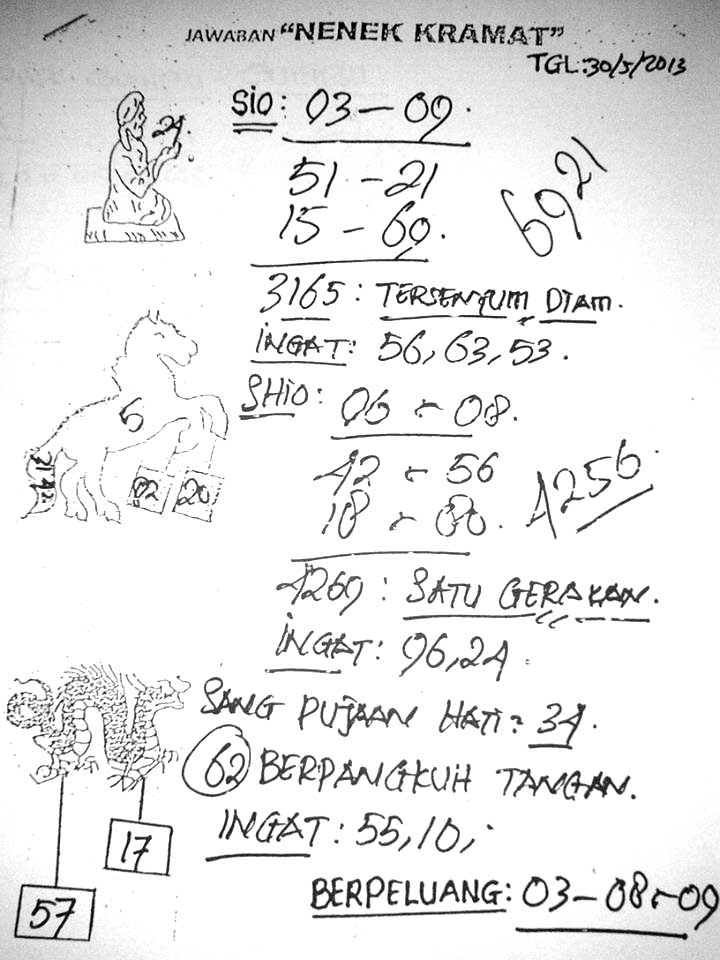 JAWABAN "NENEK KRAMAT"
TGL:30/5/2013
SIO: 03-09.
24
51-21
15-69.
6921
3165: TERSENYUM DIAM.
INGAT: 56,63,53.
SHIO: 06-08.
5
42-56
3142
02 20
18-80.
4256
4269: SATU GERAKAN.
INGAT: 96,24.
SANG PUJAAN HATI: 34.
62 BERPANGKUH TANGAN.
INGAT: 55,10,
17
BERPELUANG: 03-08-09
57